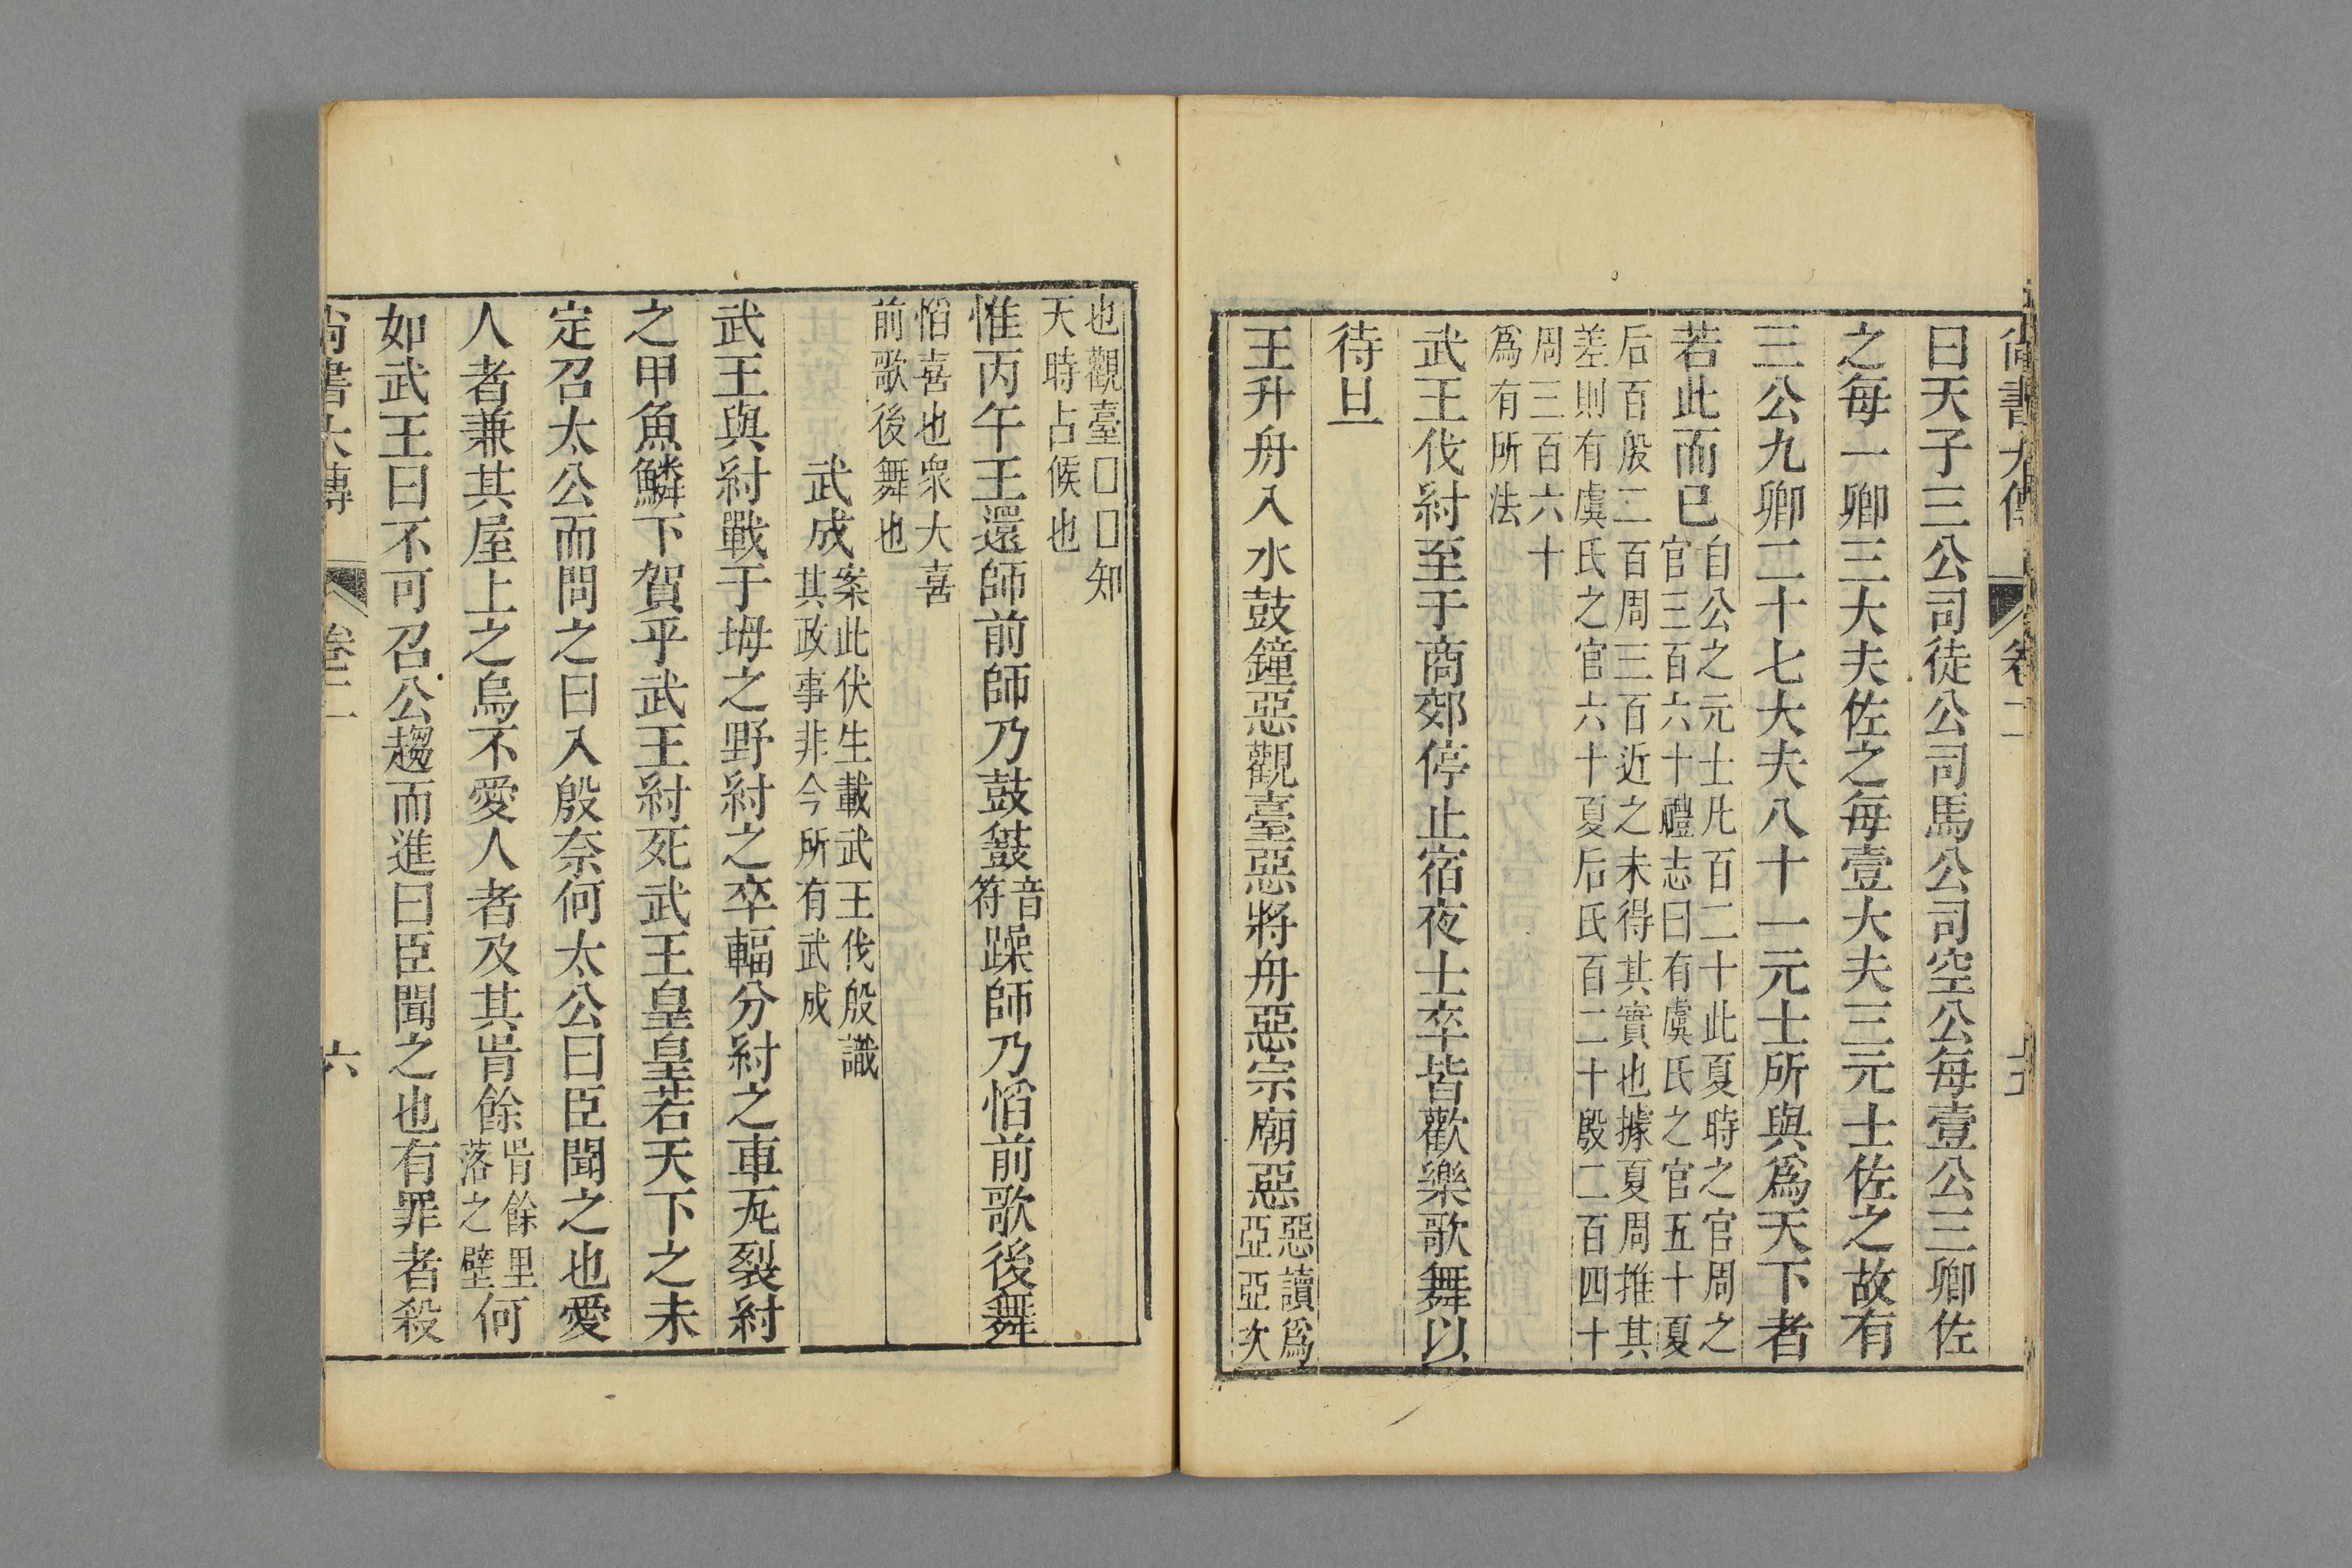 尚書大傳 卷二
曰天子三公司徒公司馬公司空公每壹公三卿佐
之每一卿三大夫佐之每壹大夫三元士佐之故有
三公九卿二十七大夫八十一元士所與爲天下者
若此而已自公之元士凡百二十此夏時之官周之
官三百六十禮志曰有虞氏之官五十夏
后百殷二百周三百近之未得其實也據夏周推其
差則有虞氏之官六十夏后氏百二十殷二百四十
周三百六十
爲有所法
武王伐紂至于商郊停止宿夜士卒皆歡樂歌舞以
待旦
王升舟入水鼓鐘惡觀臺惡將舟惡宗廟惡惡讀爲
亞亞次
也觀臺□□知
天時占候也
惟丙午王還師前師乃鼓鼖音
符躁師乃慆前歌後舞
慆喜也衆大喜
前歌後舞也
武成案此伏生載武王伐殷識
其政事非今所有武成
武王與紂戰于坶之野紂之卒輻分紂之車瓦裂紂
之甲魚鱗下賀乎武王紂死武王皇皇若天下之未
定召太公而問之曰入殷奈何太公曰臣聞之也愛
人者兼其屋上之烏不愛人者及其胥餘胥餘里
落之壁何
如武王曰不可召公趨而進曰臣聞之也有罪者殺
尚書大傳 卷二 六